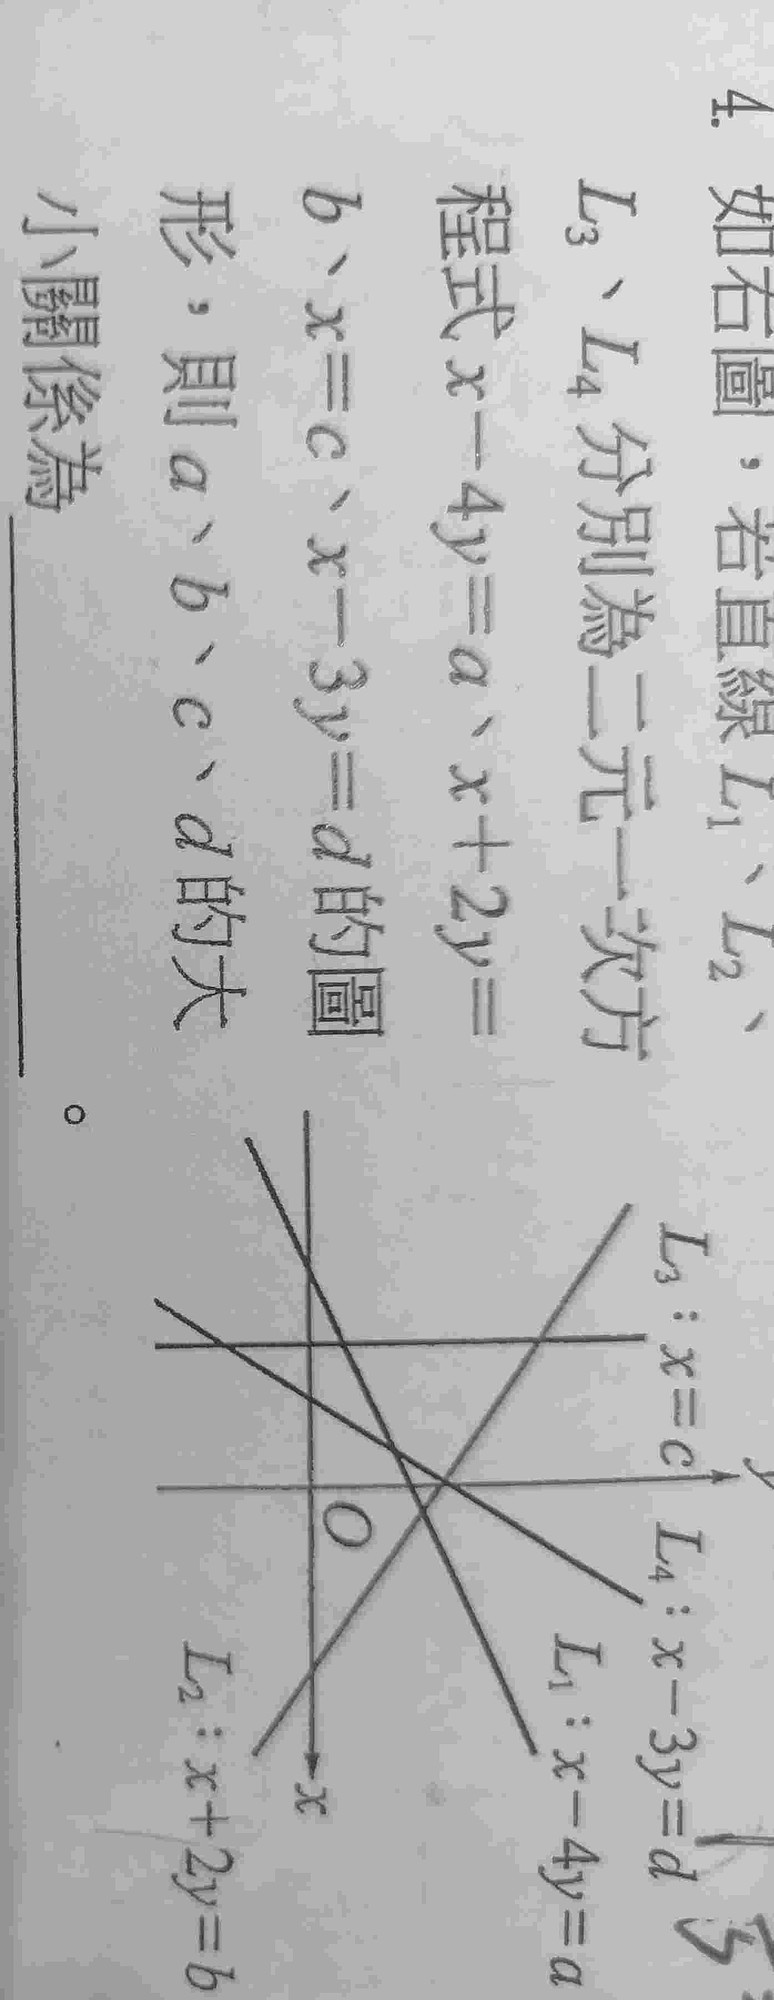 4. 如右圖，若直線 L₁、L₂、
L₃、L₄ 分別為二元一次方
程式 x－4y＝a、x＋2y＝
b、x＝c、x－3y＝d 的圖
形，則 a、b、c、d 的大
小關係為＿＿＿＿＿＿。
L₃：x＝c
y
L₄：x－3y＝d
L₁：x－4y＝a
O
x
L₂：x＋2y＝b